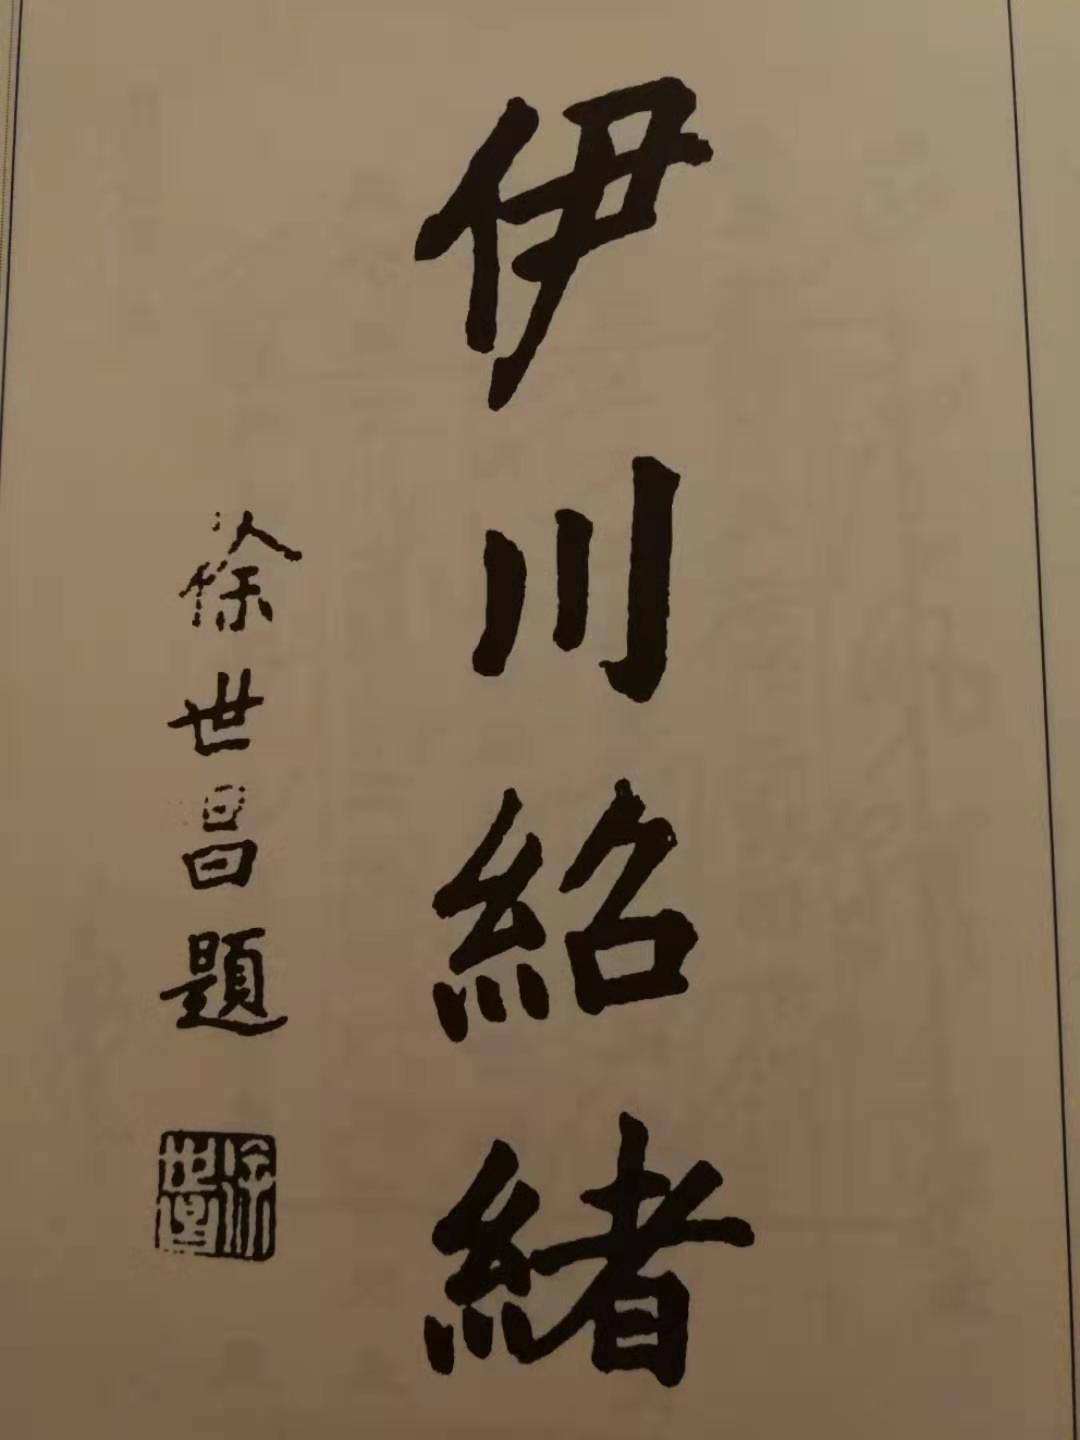 伊川紹緒
徐世昌題
徐世昌